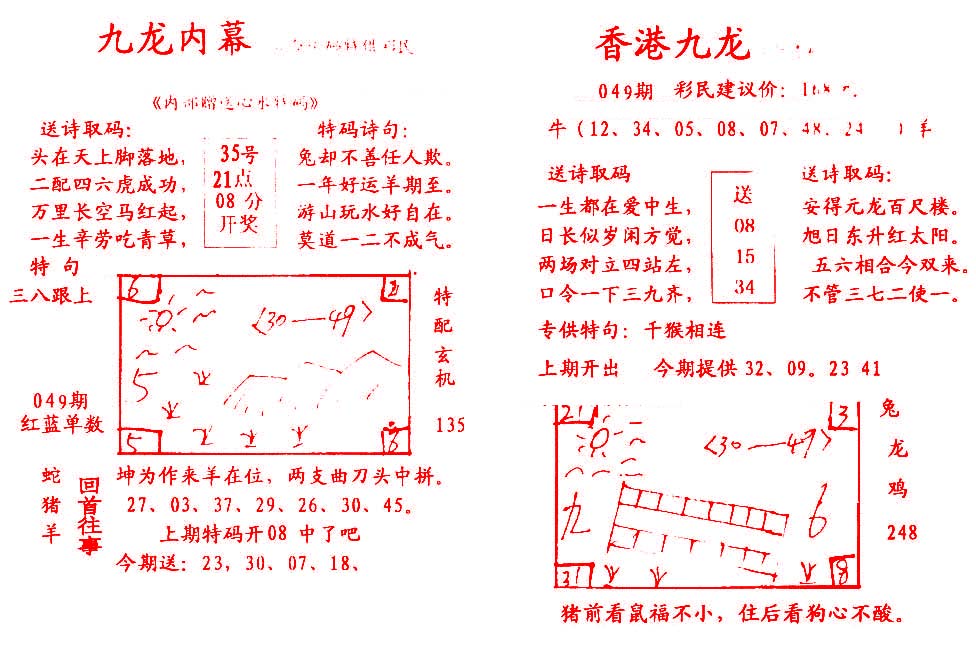 九龙内幕
《内部赠送心水特码》
送诗取码：
头在天上脚落地，
二配四六虎成功，
万里长空马红起，
一生辛劳吃青草，
35号
21点
08 分
开奖
特码诗句：
兔却不善任人欺。
一年好运羊期至。
游山玩水好自在。
莫道一二不成气。
特 句
三八跟上
049期
红蓝单数
6
2
〈30—49〉
5
5
6
特配玄机
135
蛇猪羊
回首往事
坤为作来羊在位，两支曲刀头中拼。
27、03、37、29、26、30、45。
上期特码开08 中了吧
今期送：23，30、07、18、
香港九龙
049期 彩民建议价：168
牛（12、34、05、08、07、48、24 ）羊
送诗取码
一生都在爱中生，
日长似岁闲方觉，
两场对立四站左，
口令一下三九齐，
送
08
15
34
送诗取码：
安得元龙百尺楼。
旭日东升红太阳。
五六相合今双来。
不管三七二使一。
专供特句：千猴相连
上期开出 今期提供 32、09。23 41
21
3
〈30—49〉
九
6
31
8
兔
龙
鸡
248
猪前看鼠福不小，住后看狗心不酸。